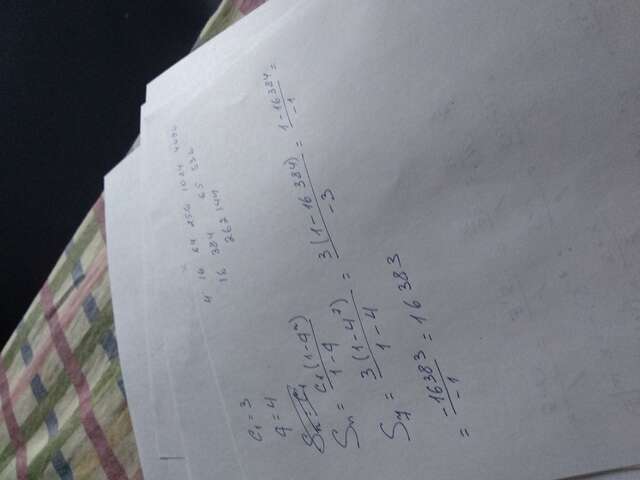 4 16 64 256 1024 4096
16 384 65 536
262 144
c₁ = 3
q = 4
Sₙ = c₁
Sₙ = c₁(1-qⁿ)/1-q
S₇ = 3(1-4⁷)/1-4 = 3(1-16384)/-3 = 1-16384/-1 =
= -16383/-1 = 16383